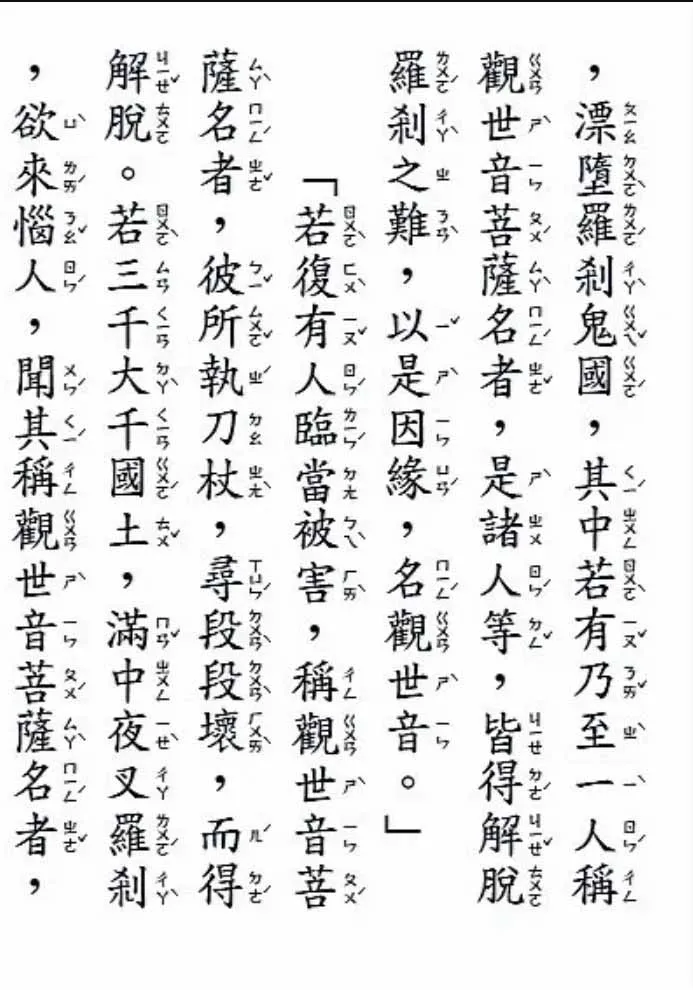 ，漂墮羅剎鬼國，其中若有乃至一人稱
觀世音菩薩名者，是諸人等，皆得解脫
羅剎之難，以是因緣，名觀世音。」
「若復有人臨當被害，稱觀世音菩
薩名者，彼所執刀杖，尋段段壞，而得
解脫。若三千大千國土，滿中夜叉羅剎
，欲來惱人，聞其稱觀世音菩薩名者，